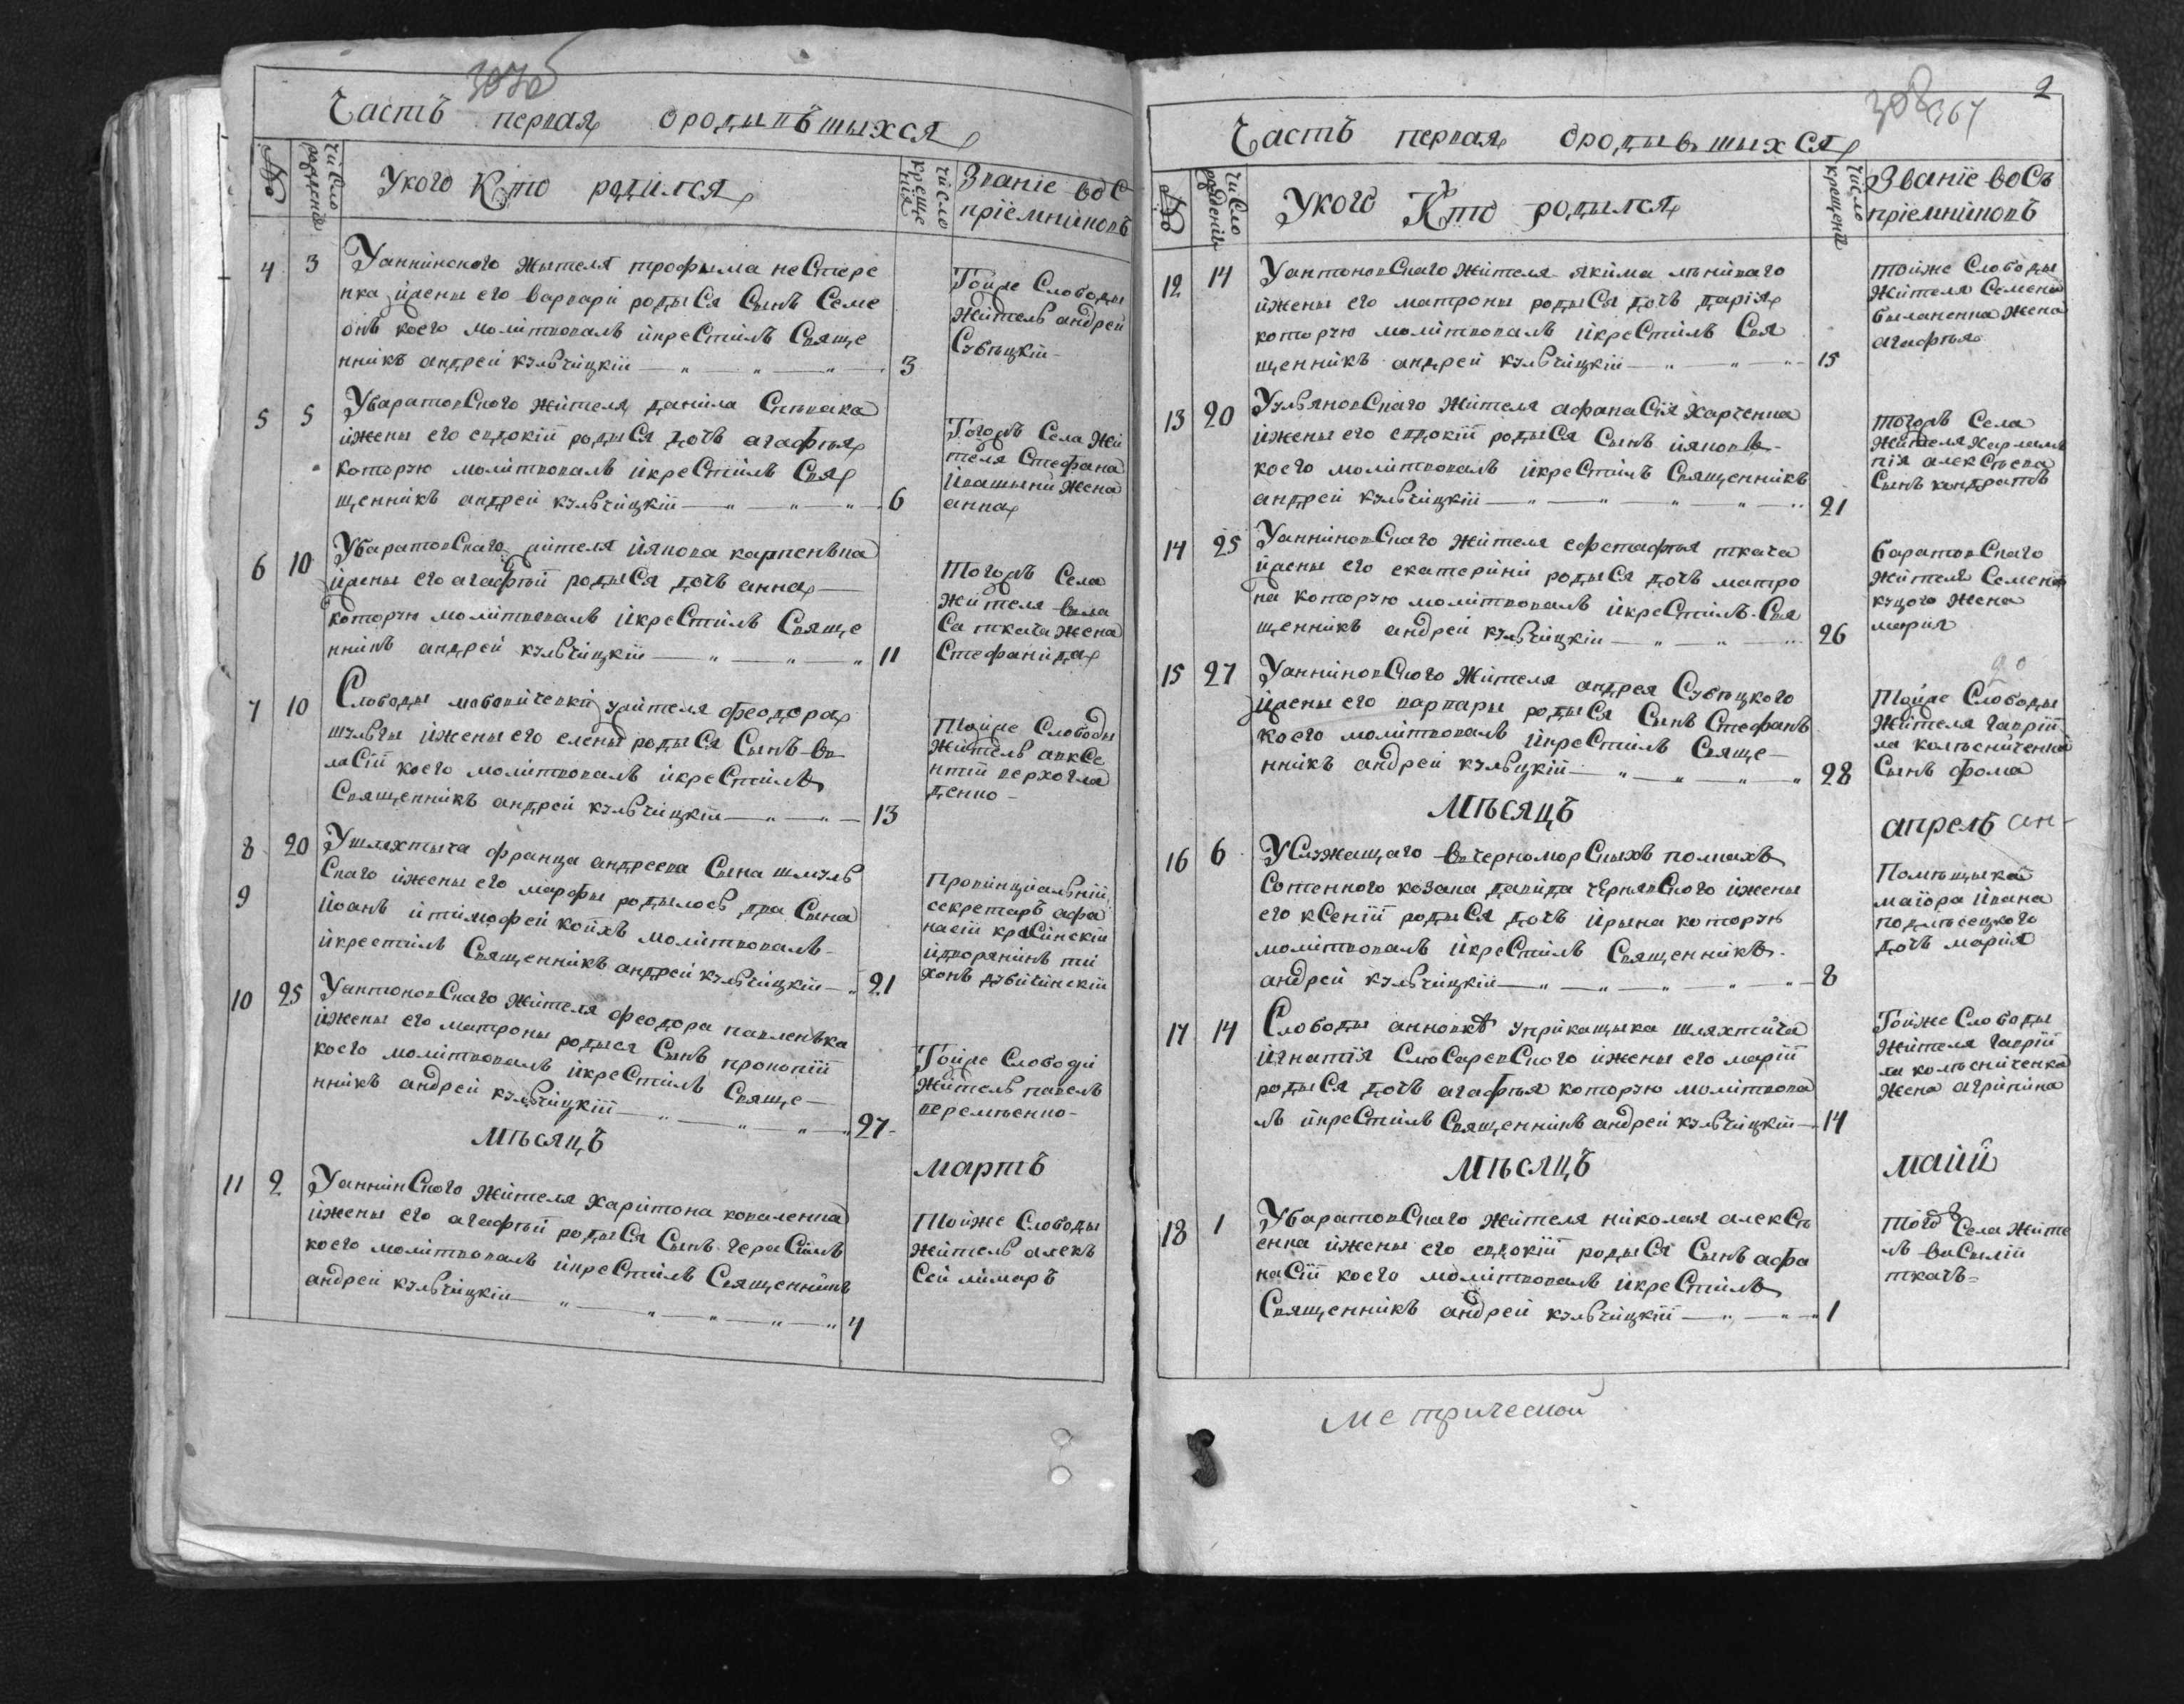 307б
Часть первая ородывъшыхся
№
число рождения
Укого Кто родился
число крещения
Званіе вос
пріемниковъ
4 3 Уаннинского жытеля трофыма неСтере
нка іжены его варвари родыСя Сынъ Семе
онъ коего молітвовалъ ікреСтилъ Свяще
нникъ андрей кульчіцкій 3
Тойже Слободы
Жытель андрей
Субѣцкій
5 5 УваратовСкого жытеля даніла Спѣвака
іжены его евдокіи родыСя дочь агафъя
которую молітвовалъ ікреСтилъ Свя
щенникъ андрей кульчіцкій 6
Тогожъ Села жи
теля Стефана
івашыни жена
анна
6 10 УбаратовСкаго жітеля іякова карпенька
іжены его агафъи родыСя дочь анна
которую молітвовалъ ікреСтилъ Свяще
нникъ андрей кульчіцкій 11
Тогожъ Села
жителя вла
Са ткача жена
Стефаніда
7 10 Слободы жителя феодора
шульгы іжены его елены родыСя Сынъ вв
лаСій коего молітвовалъ ікреСтилъ
Священникъ андрей кульчіцкій 13
Тойже Слободы
жытель авксе
нтій верхогля
денко
8 20 Ушляхтыча франца андреева Сына шмуль
9 Скаго іжены его марфы родылось два Сына
іоанъ ітімофей коихъ молітвовалъ
ікрестилъ Священникъ андрей кульчіцкій 21
Провінціальній
секретарь афа
насій краСінскій
ідворянинъ ти
хонъ дубічінскій
10 25 УантоновСкаго жителя феодора павленька
іжены его матроны родыся Сынъ прокопій
коего молітвовалъ ікреСтилъ Свяще
нникъ андрей кульчіцкій 27
Тойже Слободи
жытель павелъ
перемѣенко
мѣсяцъ мартъ
11 2 УаннінСкого жителя харітона коваленка
іжены его агафъи родыСя Сынъ гераСімъ
коего молітвовалъ ікреСтилъ Священникъ
андрей кульчіцкій 4
Тойже Слободы
жытель алекъ
Сей лімарь
308 367 2
Часть первая ородывшыхся
№
число рожденія
Укого Кто родылся
число крещенія
Званіе воСъ
пріемниковъ
12 14 УантоновСкаго жителя якіма лѣніваго
іжены его матроны родыСя дочь дарія
которую молітвовалъ ікреСтилъ Свя
щенникъ андрей кульчіцкій 15
тойже Слободы
жителя Семена
жена
агафъя
13 20 УульяновСкаго жителя афанаСія харченка
іжены его евдокіи родыСя Сынъ іяковъ
коего молітвовалъ ікреСтилъ Священникъ
андрей кульчіцкій 21
тогожъ Села
жителя харлам
пія алексѣева
Сынъ кондратъ
14 25 УанніновСкаго жителя ефстафъя ткача
іжены его екатеріни родыСя дочь матро
на которую молітвовалъ ікреСтилъ Свя
щенникъ андрей кульчіцкій 26
баратовСкаго
жителя Семена
куцого жена
марія
15 27 УанніновСкого жителя андрея Субѣцкого
іжены его варвары родыСя Сынъ Стефанъ
коего молітвовалъ ікреСтилъ Свяще
нникъ андрей кульцкій 28
Тойже Слободы
жителя гаврій
ла колѣсніченка
Сынъ фома
Мѣсяцъ апрель
16 6 УСлужащаго вчерноморСкыхъ полкахъ
Сотенного козака давіда чернявСкого іжены
его кСеніи родыСя дочь ірына которую
молітвовалъ ікреСтилъ Священникъ
андрей кульчіцкій 8
Помѣщыка
маіора івана
подлѣсецкого
дочь марія
17 14 Слободы анновкѣ упрікащыка шляхтича
ігнатія СлюСаревСкого іжены его маріи
родыСя дочь агафъя которую молітвова
лъ ікреСтилъ Священникъ андрей кульчіцкій 14
Тойже Слободы
жителя гаврій
ла колѣсніченка
жена агрипина
Мѣсяцъ маій
18 1 УбаратовСкаго жителя ніколая алексѣ
енка іжены его евдокіи родыСя Сынъ афа
наСій коего молітвовалъ ікреСтилъ
Священникъ андрей кульчіцкій 1
того Села жите
ль ваСылій
ткачь
метрической